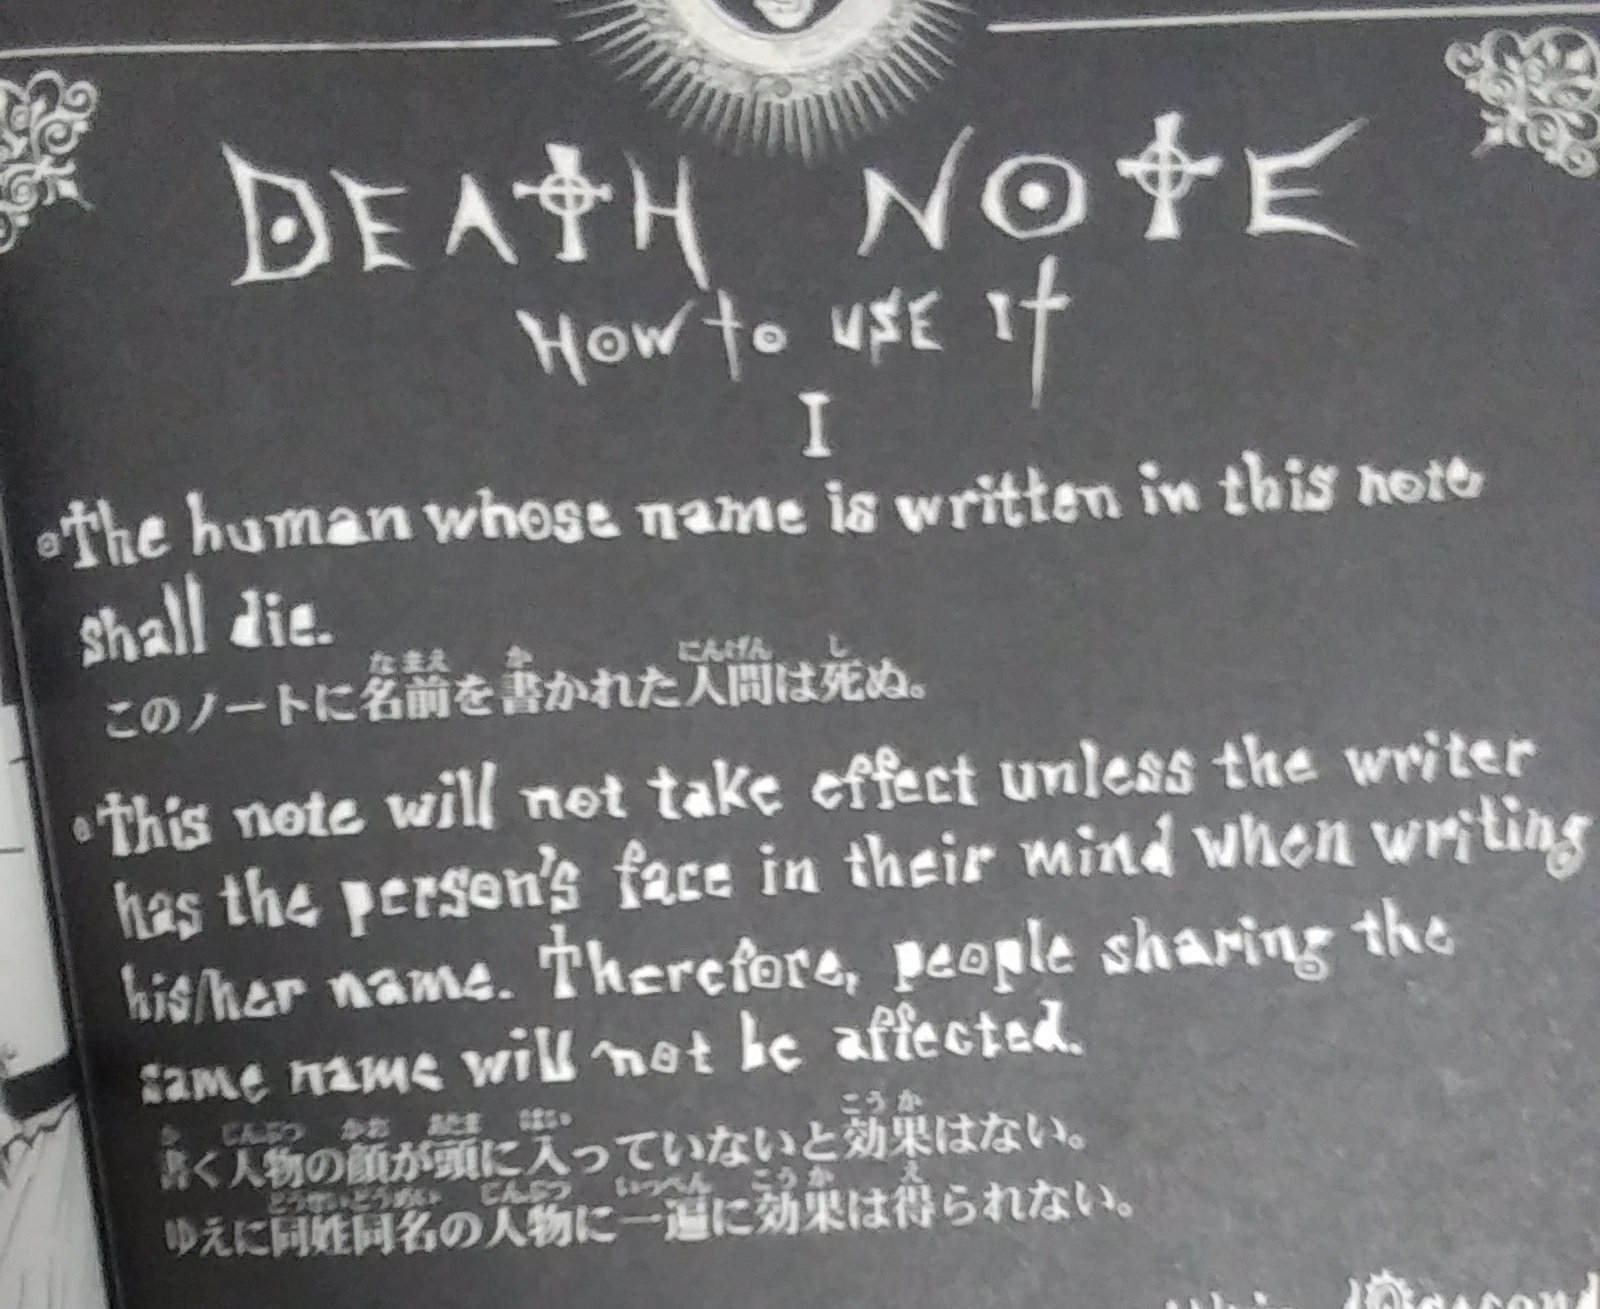 DEATH NOTE
HOW to USE It
I
The human whose name is written in this note
shall die.
なまえ か にんげん し
このノートに名前を書かれた人間は死ぬ。
This note will not take effect unless the writer
has the person's face in their mind when writing
his/her name. Therefore, people sharing the
same name will not be affected.
か じんぶつ かお あたま はい こうか
書く人物の顔が頭に入っていないと効果はない。
どうせいどうめい じんぶつ いっぺん こうか え
ゆえに同姓同名の人物に一遍に効果は得られない。